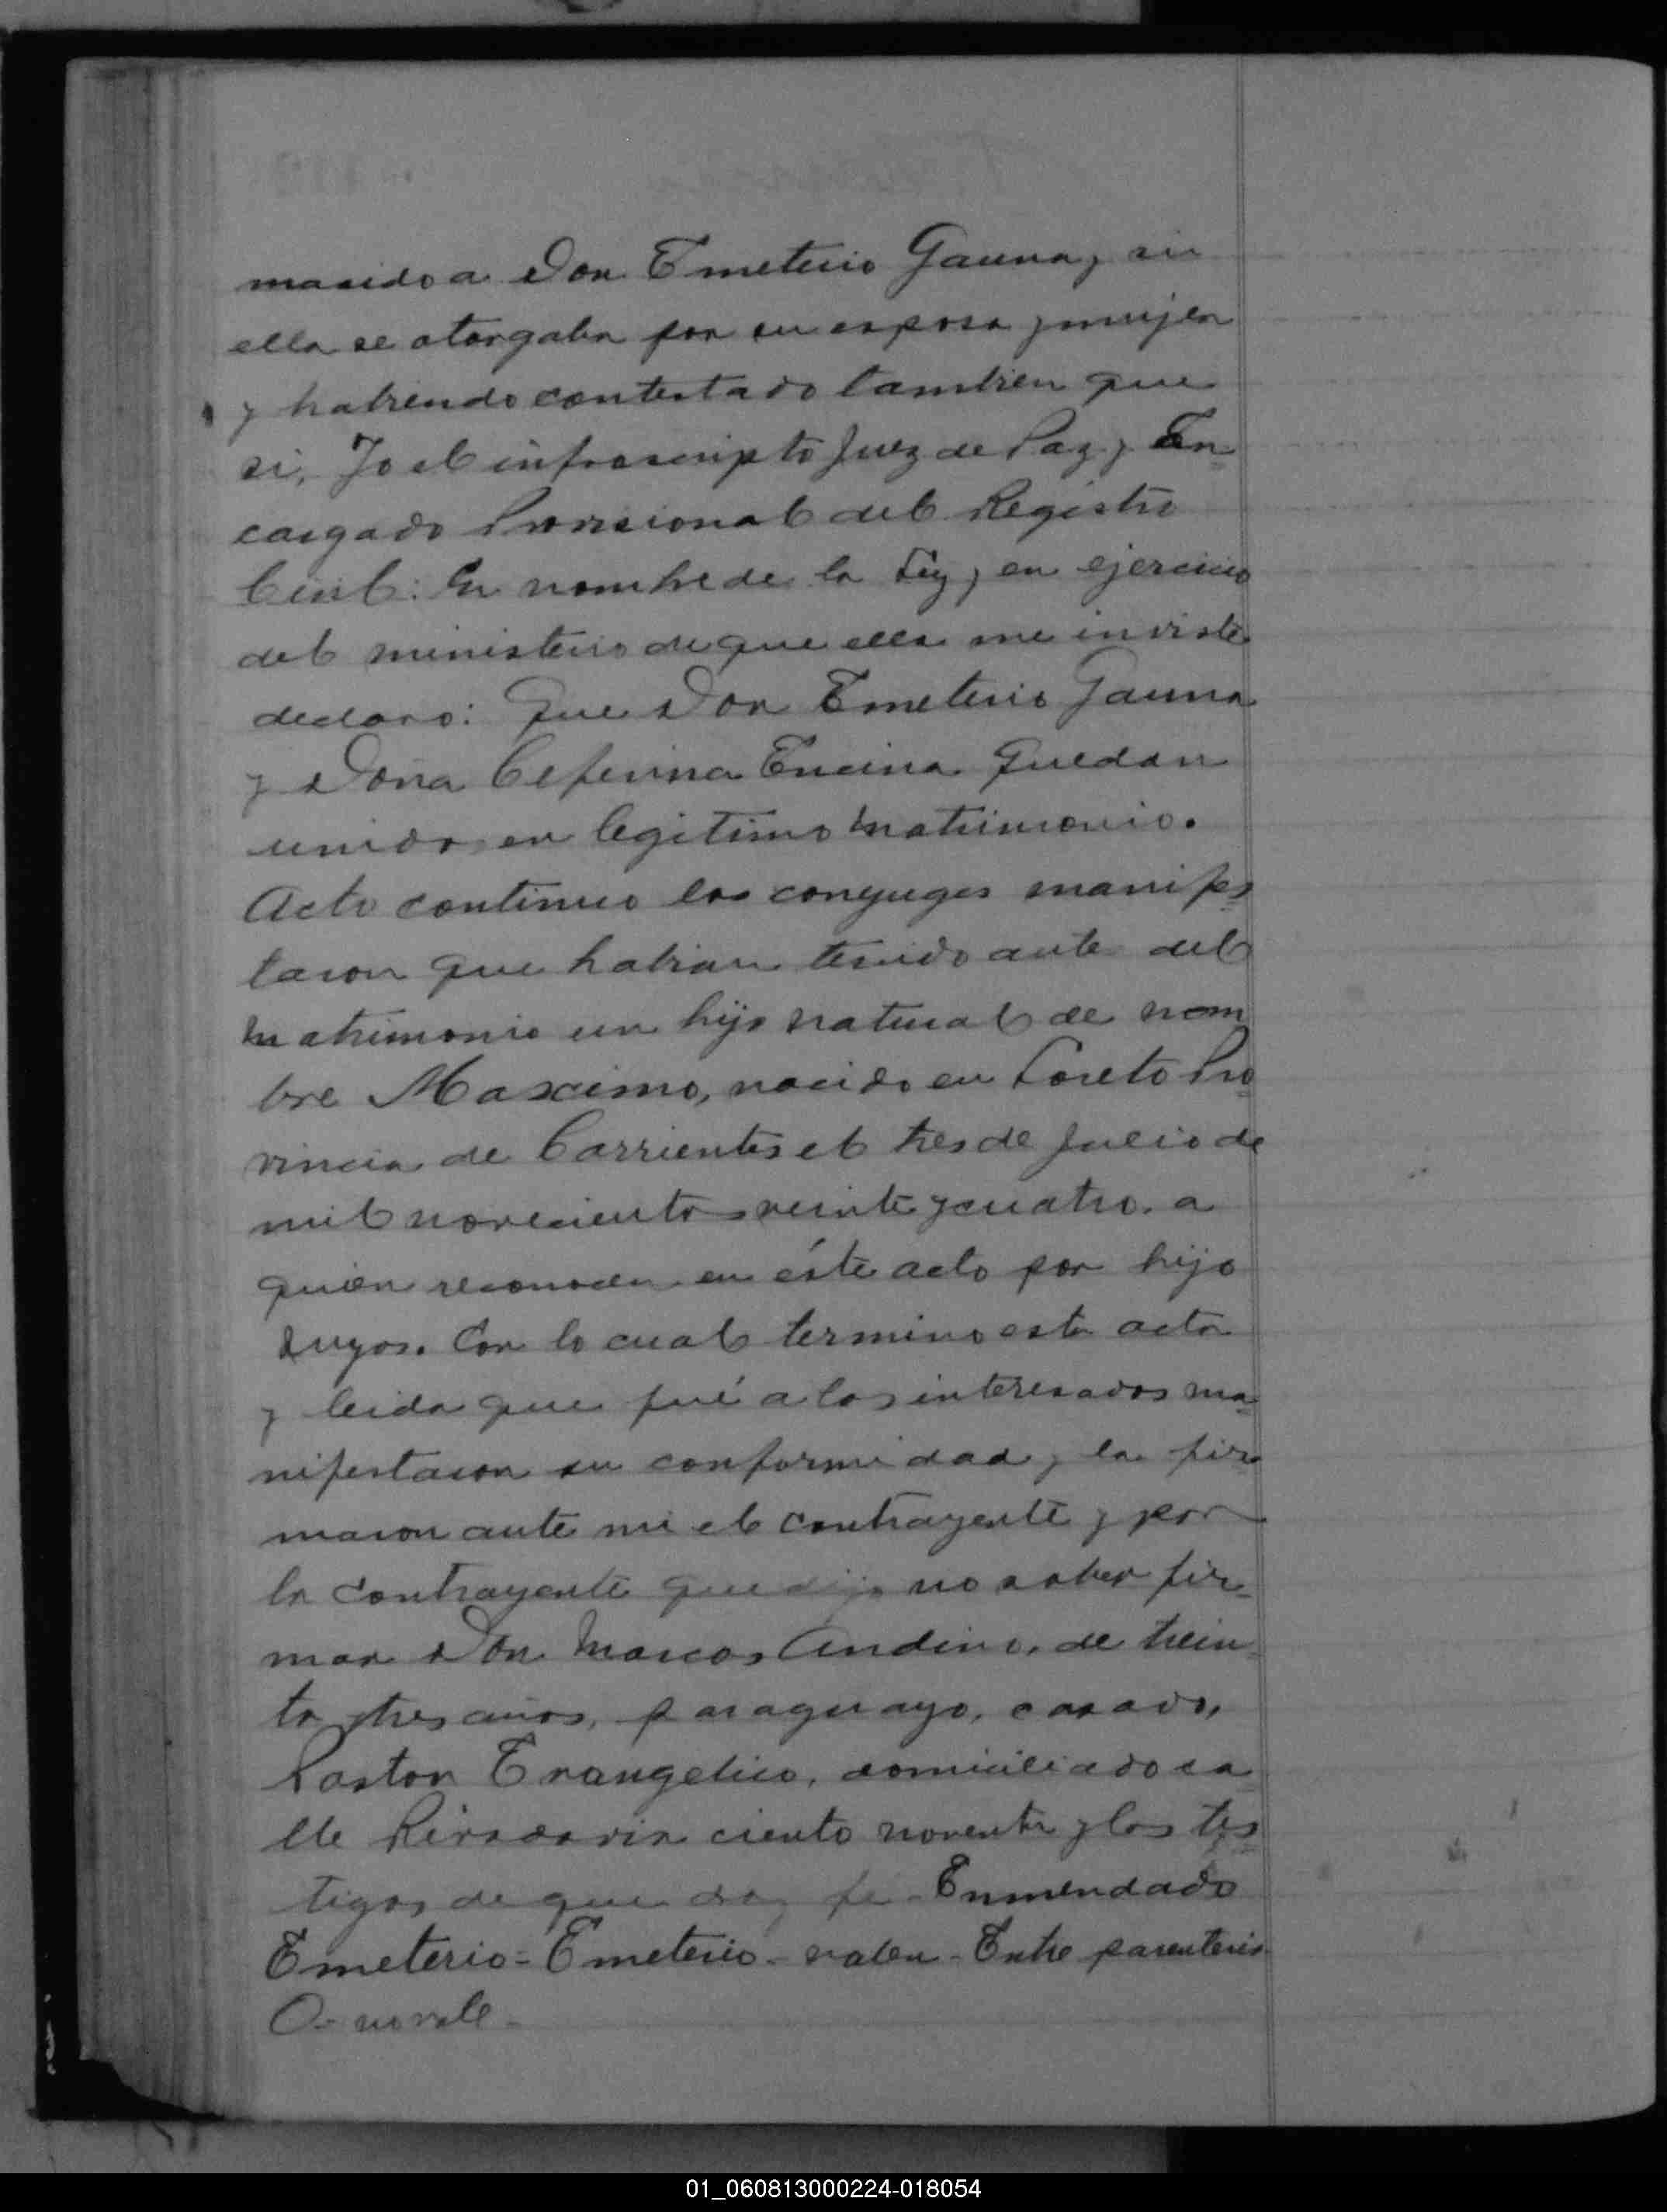 marido a Don Emeterio Gauna, si
ella se otorgaba por su esposa y mujer
y habiendo contestado tambien que
si, Yo el infrascripto Juez de Paz y En
cargado Provisional del Registro
Civil: En nombre de la Ley y en ejercicio
del ministerio de que ella me inviste
declaro: Que Don Emeterio Gauna
y Doña Ceferina Encina quedan
unidos en legitimo Matrimonio.
Acto continuo los conyuges manifes
taron que habian tenido ante del
Matrimonio un hijo natural de nom
bre Maximo, nacido en Loreto Pro
vincia de Corrientes el tres de Julio de
mil novecientos veinte y cuatro. a
quien reconocen en éste acto por hijo
suyos. Con lo cual termino esta acta
y leida que fué a los interesados ma
nifestaron su conformidad y la fir
maron ante mi el contrayente y por
la contrayente que dijo no saber fir-
mar Don Marcos Andino, de trein
ta y tres años, paraguayo, casado,
Pastor Evangelico, domiciliado ca
lle Rivadavia ciento noventa y los tes
tigos de que doy fe - Enmendado
Emeterio = Emeterio - valen - Entre parentesis
O - no vale -
01_060813000224-018054